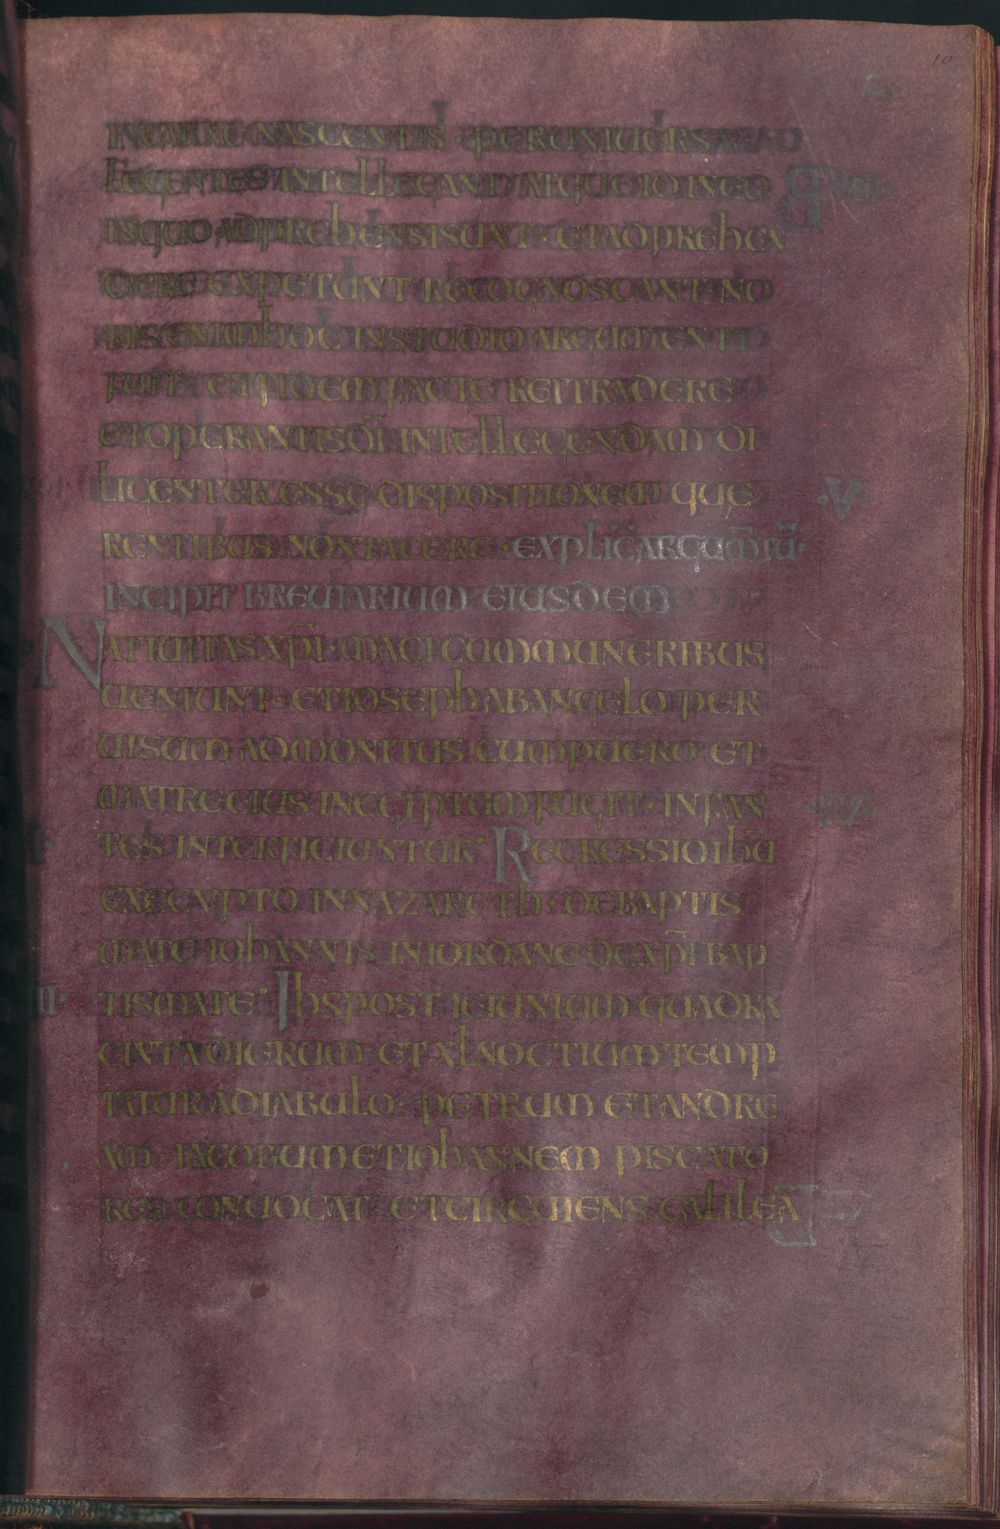 IN CARNE NASCENTIS · PER UNIUERSA
LEGENTES INTELLEGANT ATQUE ID IN EO
IN QUO ADPREHENSI SUNT · ET ADPREHEN
DERE EXPETUNT RECOGNOSCANT NO
BIS ENIM HOC IN STUDIO ARGUMENTI
FUIT · ET FIDEM FACTE REI TRADERE
ET OPERANTIS DĪ INTELLEGENDAM DI
LIGENTER ESSE DISPOSITIONEM QUE
RENTIBUS NON TACERE · EXPLIC̄ ARGUM̄TŪ·
INCIPIT BREUIARIUM EIUSDEM
NATIUITAS XP̄I · MAGI CUM MUNERIBUS
UENIUNT · ET IOSEPH AB ANGELO PER
UISUM ADMONITUS CUM PUERO ET
MATRE EIUS IN EGIPTUM FUGIT · INFAN
TES INTERFICIUNTUR · REGRESSIO IHŪ
EX EGYPTO IN NAZARETH · DE BAPTIS
MATE IOHANNIS IN IORDANE DE XP̄I BAP
II· TISMATE · IHS̄ POST IEIUNIUM QUADRA
GINTA DIERUM ET XL NOCTIUM TEMP
TATUR A DIABULO · PETRUM ET ANDRE
AM · IACOBUM ET IOHANNEM PISCATO
RES CONUOCAT · ET CIRCUIENS GALILEĀ